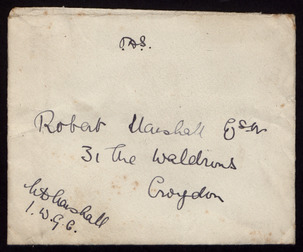 Robert Marshall Esqr
31 The Waldrons
Croydon
Marshall
I.W.G.C.